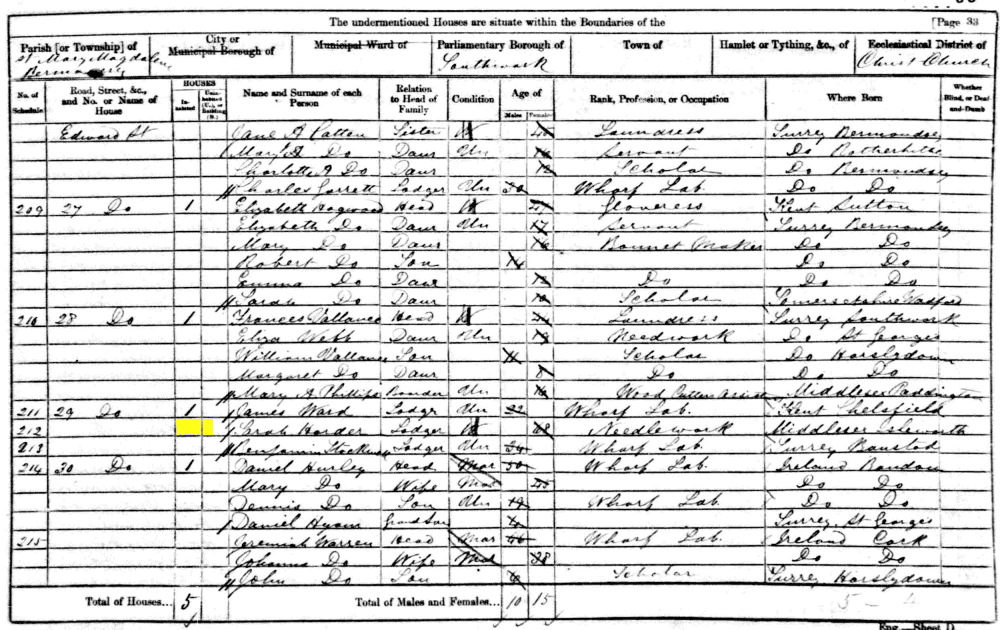 The undermentioned Houses are situate within the Boundaries of the
[Page 33
Parish [or Township] of
St Mary Magdalen
Bermondsey
City or
Municipal Borough of
Municipal Ward of
Parliamentary Borough of
Southwark
Town of
Hamlet or Tything, &c., of
Ecclesiastical District of
Christ Church
No. of Schedule
Road, Street, &c., and No. or Name of House
HOUSES
In-habited
Unin-habited (U.), or Building (B.)
Name and Surname of each Person
Relation to Head of Family
Condition
Age of
Males
Females
Rank, Profession, or Occupation
Where Born
Whether Blind, or Deaf-and-Dumb
Edward St Jane A Patton Sister W Laundress Surrey Bermondsey
Mary A Do Daur Un Servant Do Rotherhithe
Charlotte A Do Daur Scholar Do Bermondsey
Charles Garrett Lodger Un 30 Wharf Lab. Do Do
209 27 Do 1 Elizabeth Hogwood Head W Gloveress Kent Sutton
Elizabeth Do Daur Un 17 Servant Surrey Bermondsey
Mary Do Daur 16 Bonnet Maker Do Do
Robert Do Son 14 Do Do
Emma Do Daur Do Do Do
Sarah Do Daur Scholar Somersetshire
210 28 Do 1 Frances Vallance Head W Laundress Surrey Southwark
Eliza Webb Daur Un Needlework Do St Georges
William Vallance Son 11 Scholar Do Horslydown
Margaret Do Daur 8 Do Do Do
Mary A Phillips Un Wood Cutters Middlesex Paddington
211 29 Do 1 James Ward Lodgr Un 22 Wharf Lab. Kent Chelsfield
212 Sarah Harder Lodger W 68 Needlework Middlesex Isleworth
213 Benjamin Lodger Un Wharf Lab. Surrey Banstead
214 30 Do 1 Daniel Hurley Head Mar 50 Wharf Lab. Ireland Bandon
Mary Do Wife Mar 45 Do Do
Dennis Do Son Un 19 Wharf Lab. Do Do
Daniel Grandson Surrey St Georges
215 Jeremiah Warren Head Mar 46 Wharf Lab. Ireland Cork
Johanna Do Wife Mar 38 Do Do
John Do Son 6 Scholar Surrey Horslydown
Total of Houses... 5
Total of Males and Females... 10 15
5 - 4
Eng.—Sheet D.